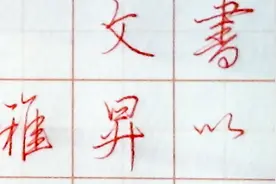 書以
文昇
雅